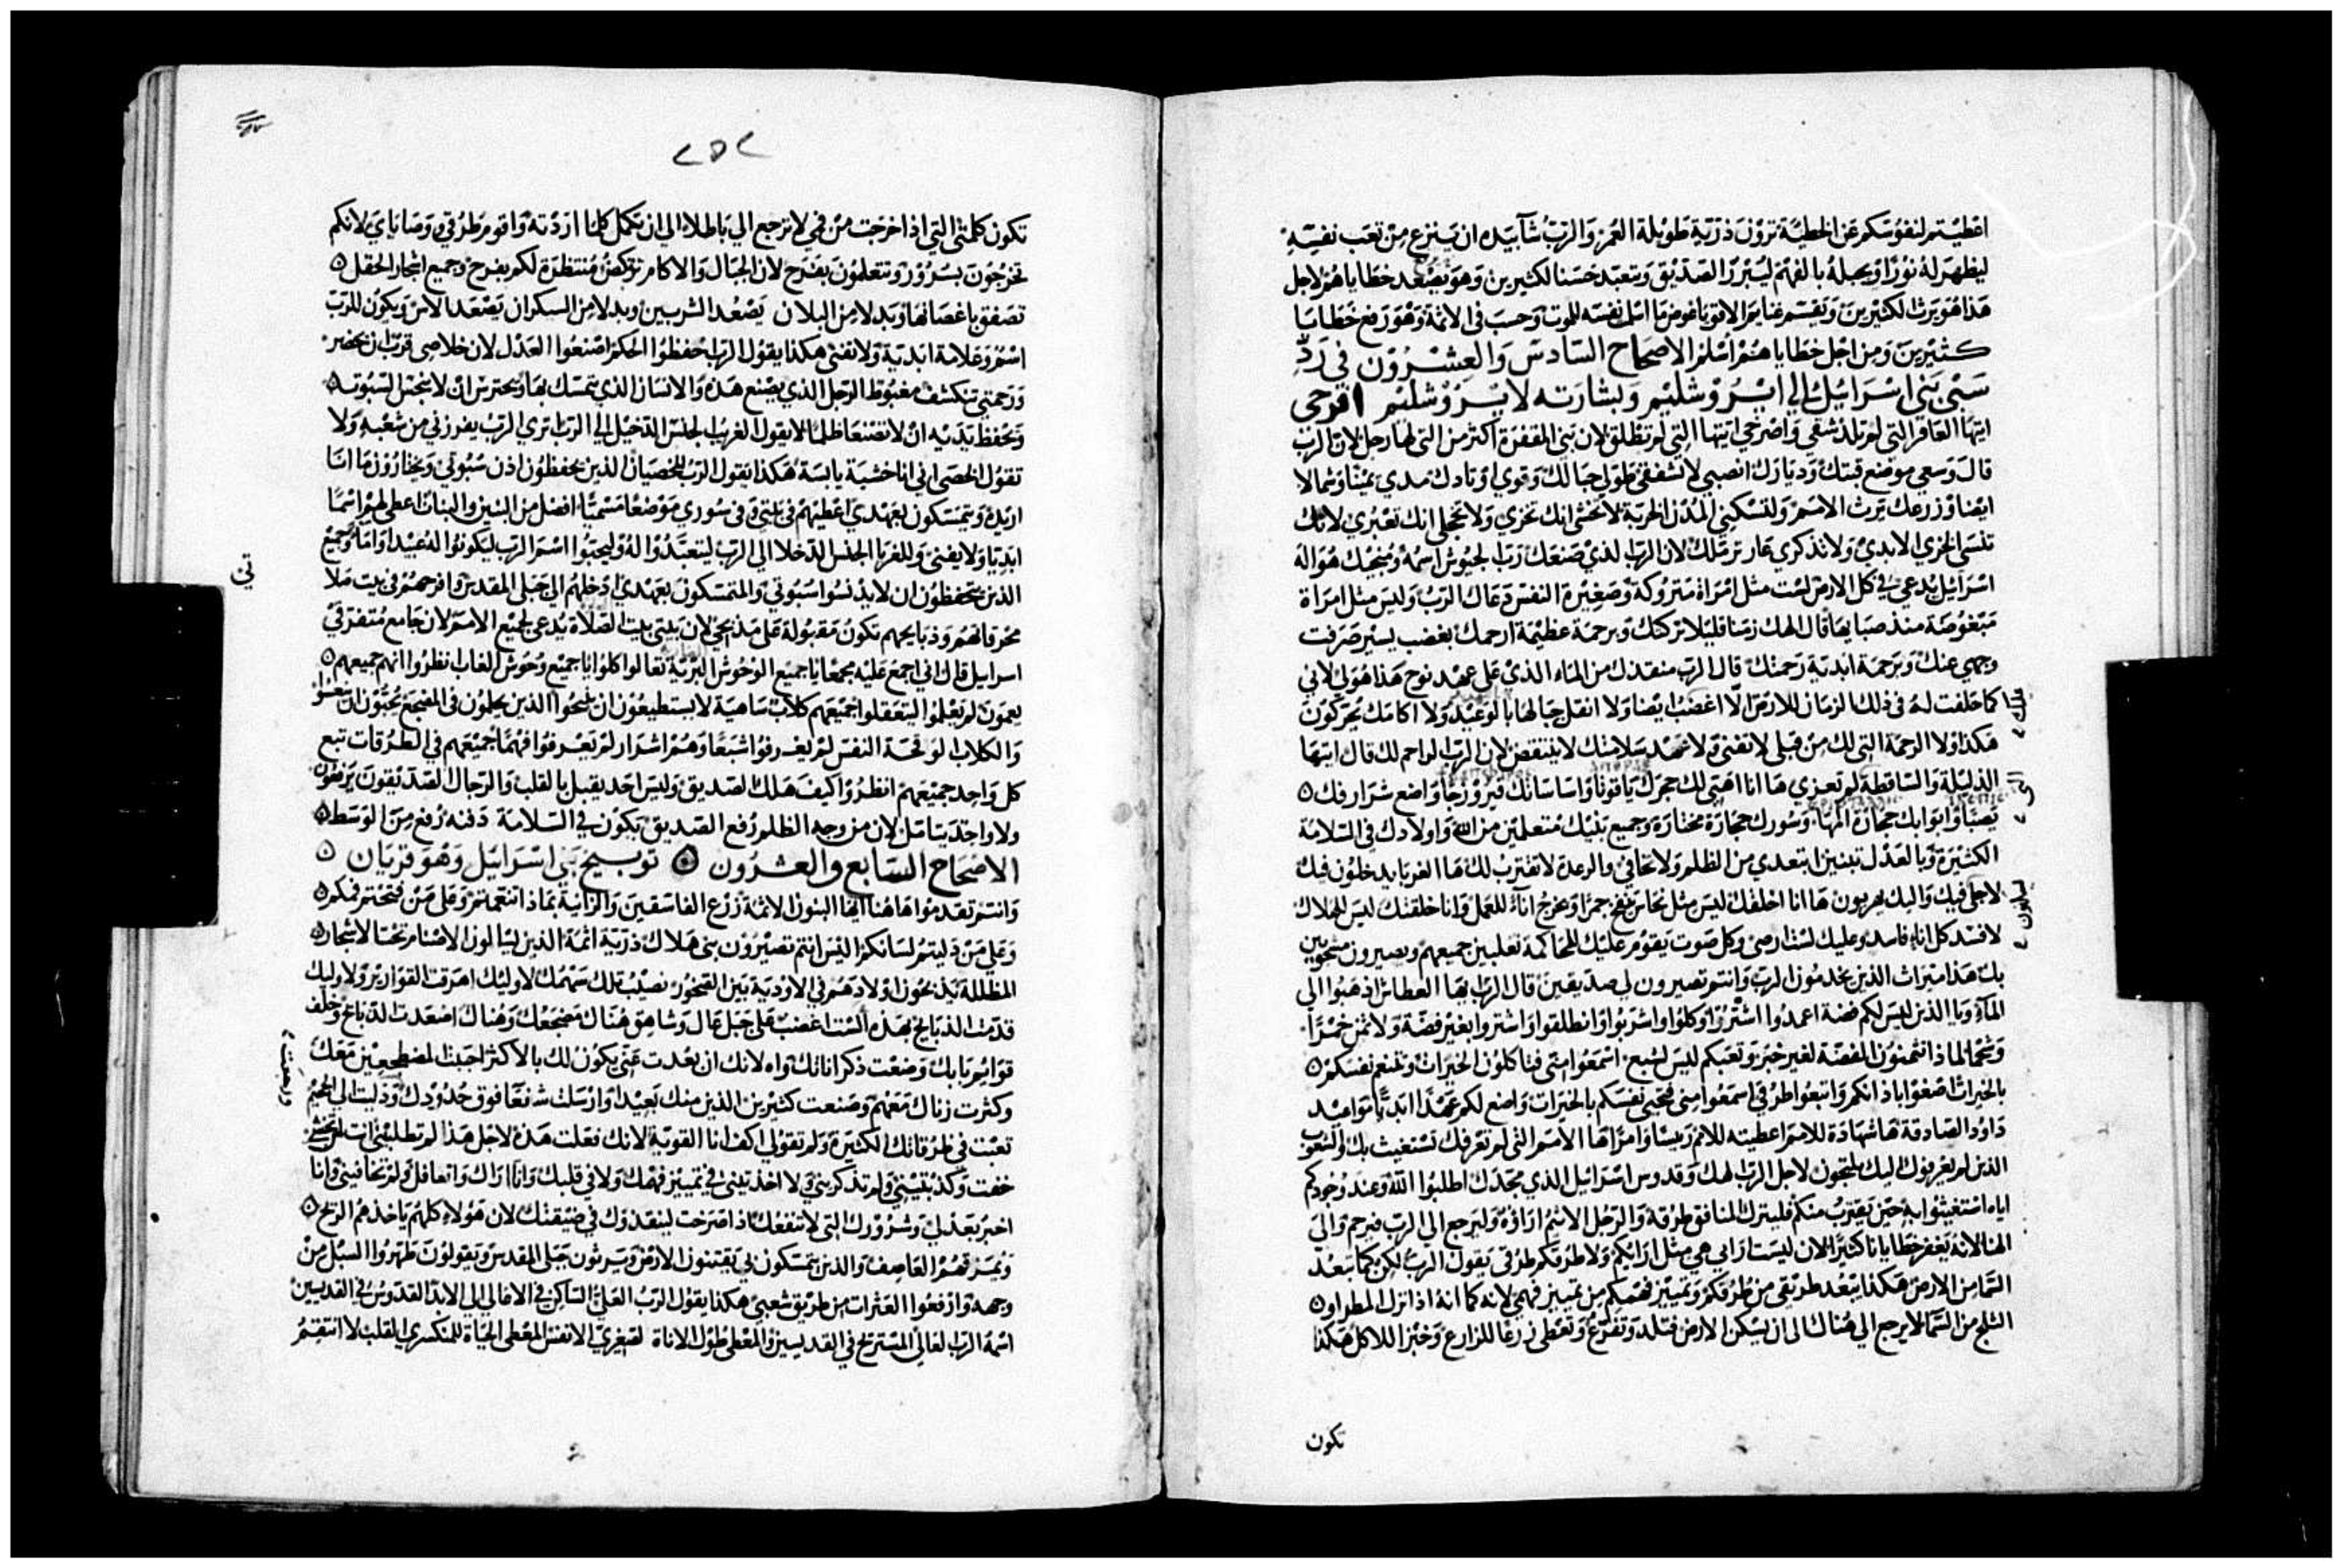 اعطيتم لنفوسكم عن الخطية ترون ذرية طويلة العمر والرب شآ بيده ان ينزع من تعب نفسه
ليظهر له نورًا ويجبله بالفهم ليبرر الصديق ويتعبد حسنا لكثيرين وهو يصعد خطاياهم لاجل
هذا هو يرث الكثيرين ويقسم غنايم الاقويا عوض ما اسلم نفسه للموت وحسب في الاثمة وهو رفع خطايا
كثيرين ومن اجل خطاياهم اسلم الاصحاح السادس والعشرون في رد
سبي بني اسرائيل الي ايروشليم وبشارته لايروشليم افرحي
ايتها العاقر التي لم تلد شقي واصرخي ايتها التي لم تطلق لان بني المقفرة اكثر من التي لها رجل لان الرب
قال وسعي موضع قبتك وديارك انصبي لا تشفقي طولي حبالك وقوي اوتادك مدي يمينًا وشمالا
ايضا وزرعك يرث الامم ولتسكني المدن الخربة لا تخشي انك تخزي ولا تخجلي انك تعيري لانك
تنسي الخزي الابدي ولا تذكري عار ترملك لان الرب الذي صنعك رب الجيوش اسمه ومنجيك هو اله
اسرائيل يدعي في كل الارض لست مثل امراة متروكة وصغيرة النفس دعاك الرب وليس مثل امراة
مبغوضة منذ صبايها قال الهك زمنا قليلا تركتك وبرحمة عظيمة ارحمك بغضب يسير صرفت
وجهي عنك وبرحمة ابدية رحمتك قال الرب منقذك من الماء الذي علي عهد نوح هذا هو لي لاني
كما حلفت له في ذلك الزمان للارض الا اغضب ايضا ولا انقل جبالها بالوعيد ولا اكامك يحركون
هكذا ولا الرحمة التي لك من قبلي لا تفني ولا عهد سلامتك لا ينتقض لان الرب الراحم لك قال ايتها
الذليلة والساقطة لم تعزي ها انا اهيي لك حجرك ياقوتا واساساتك فيروزجًا واضع شرارفك
يصبًا وابوابك حجارة المها وسورك حجارة مختارة وجميع بنيك متعلمين من الله واولادك في السلامة
الكثيرة وبالعدل تبنين ابتعدي من الظلم ولا تخافي والرعدة لا تقترب لك ها الغربا يدخلون فيك
لاجلي فيك واليك يهربون ها انا اخلقك ليس مثل نحاس ينفخ جمرًا ويخرج انآء للعمل وانا خلقتك ليس للهلاك
لافسد كل اناء فاسد وعليك لست ارضي وكل صوت يقوم عليك للمحاكمة تغلبين جميعهم ويصيرون منحويين
بك هذا ميراث الذين يخدمون الرب وانتم تصيرون لي صديقين قال الرب ايها العطاش اذهبوا الي
المآء ويا الذين ليس لكم فضة اعمدوا اشتروا وكلوا واشربوا وانطلقوا واشتروا بغير فضة ولا ثمن خمرًا
وشحما لماذا تثمنون الفضة لغير خبز وتعبكم ليس لشبع اسمعوا مني فتاكلون الخيرات وتنعم نفسكم
بالخيرات اصغوا باذانكم واتبعوا طرقي اسمعوا مني فتحيي نفسكم بالخيرات واضع لكم عهدًا ابديًا مواعيد
داود الصادقة ها شهادة للامم اعطيته للامم رييسًا وامرًا ها الامم التي لم تعرفك تستغيث بك والشعوب
الذين لم يعرفوك اليك يلتجون لاجل الرب الهك وقدوس اسرائيل الذي مجدك اطلبوا الله وعند وجودكم
اياه استغيثوا به حين يقترب منكم فليترك المنافق طرقه والرجل الاثيم اراؤه وليرجع الي الرب فيرحم والي
الهنا لانه يغفر خطايانا كثيرًا لان ليست ارايي هي مثل ارايكم ولا طرقكم طرقي يقول الرب لكن كما تبعد
السما من الارض هكذا يبتعد طريقي من طرقكم وتمييز فهمكم من تمييز فهمي لانه كما انه اذا نزل المطر او
الثلج من السما لا يرجع الي هناك الي ان يسكن الارض فتلد وتفرع وتعطي زرعًا للزارع وخبزا للاكل هكذا
تكون
٢٥٢
تكون كلمتي التي اذا خرجت من فمي لا ترجع الي باطلا الي ان تكمل كلما اردته واقوم طرقي ووصاياي لانكم
تخرجون بسرور وتتعلمون بفرح لان الجبال والاكام تركض منتظرة لكم بفرح وجميع اشجار الحقل
تصفق باغصانها وبدلا من البلان يصعد الشربين وبدلا من السكران يصعد الاس ويكون للرب
اسمر وعلامة ابدية ولا تفني هكذا يقول الرب احفظوا الحكم اصنعوا العدل لان خلاصي قرب ان يحضر
ورحمتي تنكشف مغبوط الرجل الذي يصنع هذه والانسان الذي يتمسك بها ويحترس ان لا ينجس السبوت
ويحفظ يديه ان لا تصنعا ظلما لا يقول الغريب الجنس الدخيل الي الرب اتري الرب يفرزني من شعبه ولا
تقول الخصي اني انا خشبة يابسة هكذا يقول الرب للخصيان الذين يحفظون اذن سبوتي ويختارون ما انا
اريده ويتمسكون بعهدي اعطيهم في بيتي وفي سوري موضعًا مسميًا افضل من البنين والبنات اعطي لهم اسمًا
ابديا ولا يفني وللغربا الجنس الدخلا الي الرب ليتعبدوا له وليحبوا اسم الرب ليكونوا له عبيدا واماء وجميع
الذين يتحفظون ان لا يدنسوا سبوتي والمتمسكون بعهدي ادخلهم الي جبلي المقدس وافرحهم في بيت صلا
تي
محرقاتهم وذبايحهم تكون مقبولة علي مذبحي لان بيتي بيت الصلاة يدعي لجميع الامم لان جامع متفرقي
اسرايل قال اني اجمع عليه مجمعًا يا جميع الوحوش البرية تعالوا كلوا يا جميع وحوش الغاب انظروا انهم جميعهم
يعمون لم يعلموا ليتعقلوا جميعهم كلاب ساهية لا يستطيعون ان ينبحوا الذين يحلمون في المضجع يحبون ان ينعسوا
والكلاب الوقحة النفس لم يعرفوا شبعًا وهم اشرار لم يعرفوا فهمًا جميعهم في الطرقات تبع
كل واحد جميعهم انظروا كيف هلك الصديق وليس احد يقبل بالقلب والرجال الصديقون يرفعون
ولا واحد يتامل لان من وجه الظلم رفع الصديق يكون في السلامة دفنه رفع من الوسط
الاصحاح السابع والعشرون توبيخ بني اسرائيل وهو قربان
وانتم تقدموا هاهنا ايها البنون الاثمة زرع الفاسقين والزانية بماذا تنعمتم وعلي من فتحتم فمكم
وعلي من دليتم لسانكم اليس انتم تصيرون بني هلاك ذرية اثمة الذين يسالون الاصنام تحت الاشجار
المظللة يذبحون اولادهم في الاودية بين الصخور نصيبك تلك سهمك لاوليك اهرقت القوارير ولاوليك
قدمت الذبايح بهذه الست اغضب علي جبل عال وشاهق هناك مضجعك وهناك اصعدت الذبايح وخلف
قوايم بابك وضعت ذكراناتك واه لانك ان بعدت عني يكون لك بالاكثر احببت المضطجعين معك
وكثرت زناك معهم وصنعت كثيرين الذين منك بعيدا وارسلت شفعًا فوق حدودك ودليت الي الجحيم
تعبت في طرقاتك الكثيرة ولم تقولي اكف انا القوية لانك فعلت هذه لاجل هذا لم تطلبيني انت
خفت وكذبتيني ولم تذكريني ولا اخذتيني في تمييز فهمك ولا في قلبك وانا اراك واتغافل ولم تخافيني وانا
اخبر بعدلي وشرورك التي لا تنفعك اذا صرخت لينقذوك في ضيقتك لان هولاء كلهم ياخذهم الريح
وتمزقهم العاصف والذين يتمسكون بي يقتنون الارض ويرثون جبلي المقدس ويقولون طهروا السبل من
وجهه وارفعوا العثرات من طريق شعبي هكذا يقول الرب العلي الساكن في الاعالي الي الابد القدوس في القديسين
اسمه الرب العالي المستريح في القديسين والمعطي طول الاناة لصغيري الانفس المعطي الحياة للمنكسري القلب لا انتقم